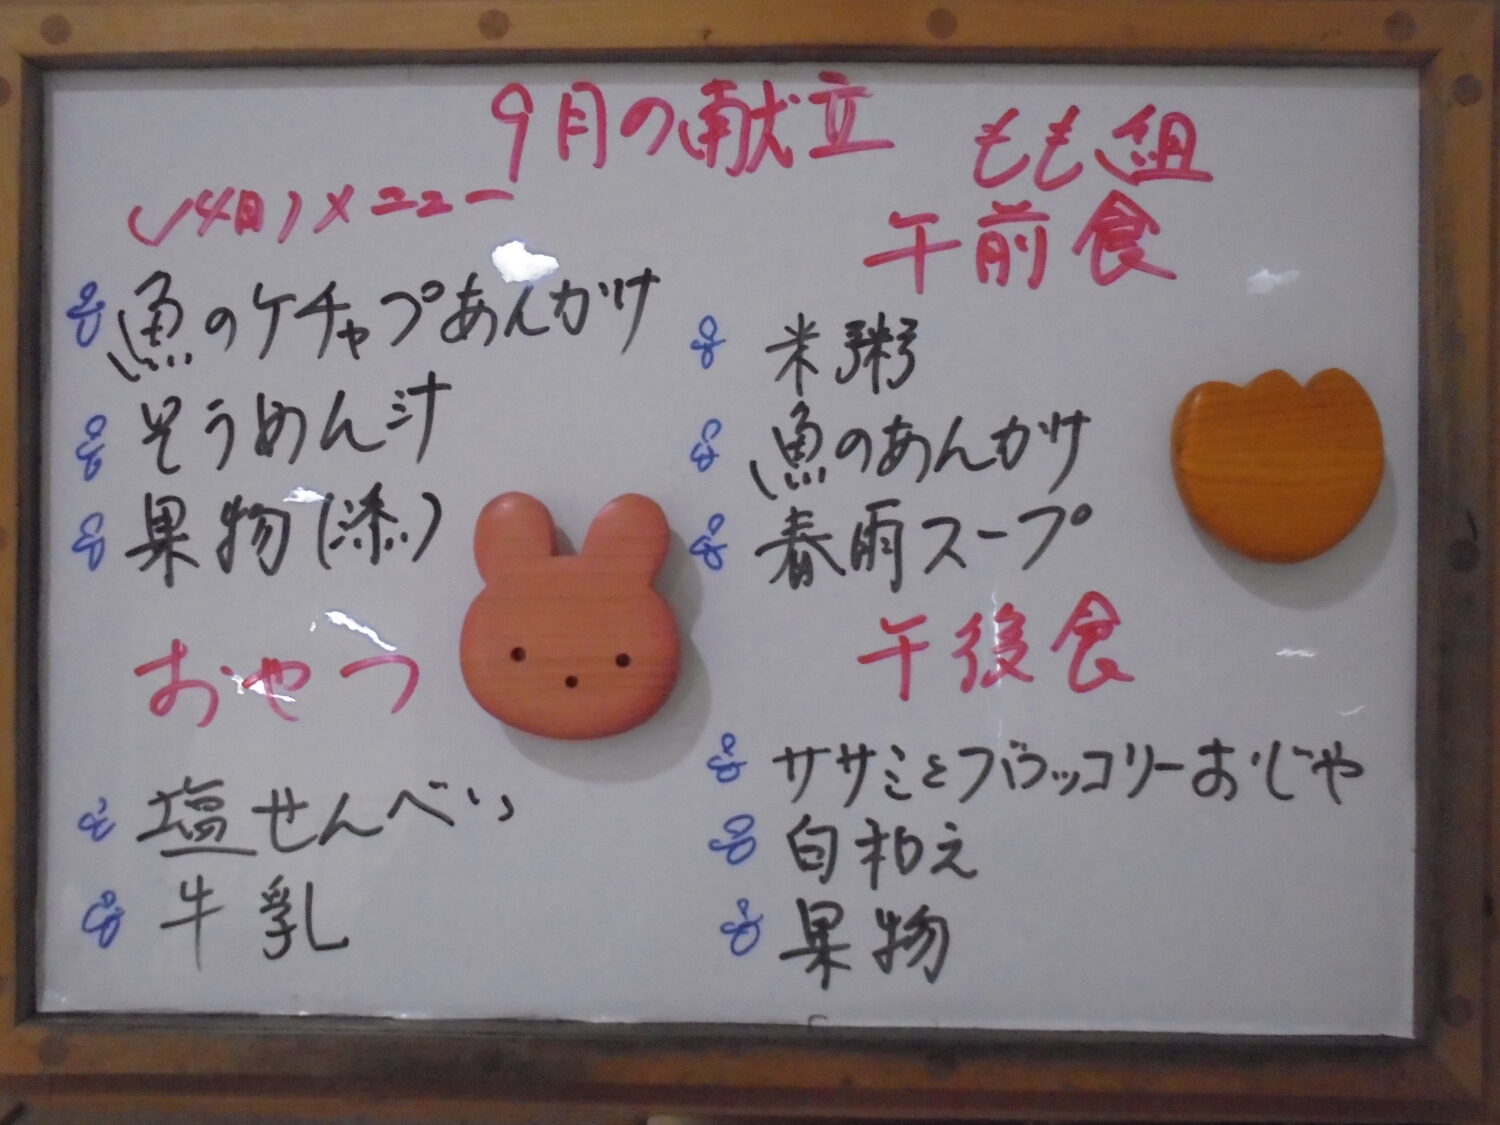 9月の献立
もも組
(14日)メニュー
魚のケチャップあんかけ
そうめん汁
果物(添)
おやつ
塩せんべい
牛乳
午前食
米粥
魚のあんかけ
春雨スープ
午後食
ササミとブロッコリーおじや
白和え
果物